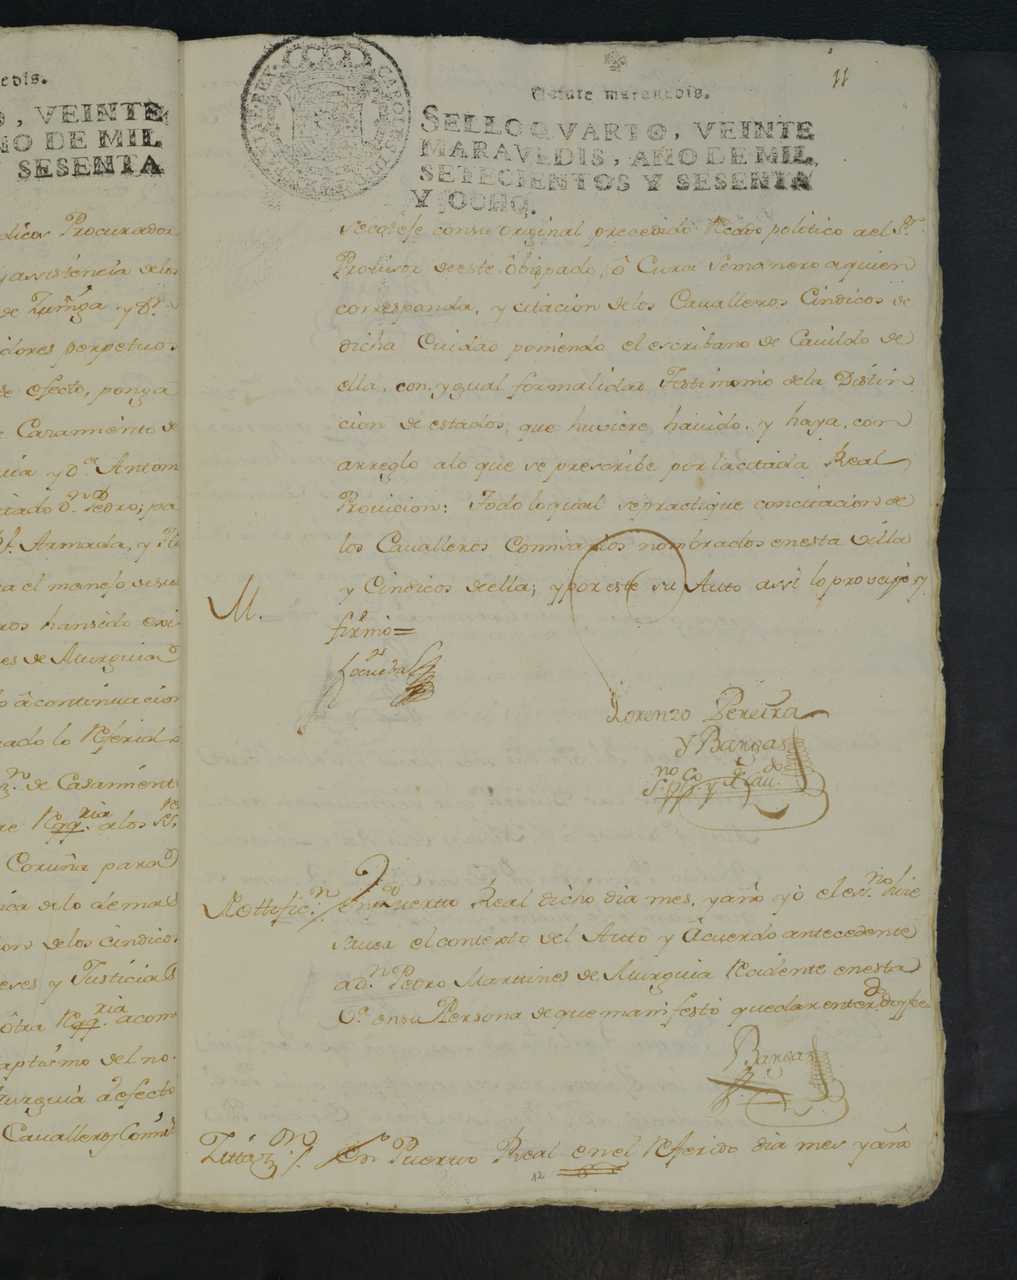 edis.
O, VEINTE
ÑO DE MIL
SESENTA
dicos Procurador
y assistencia de los
de Zuñiga, y Dn.
idores perpetuos
de efecto, ponga
Casamiento de
y Dn. Antoni
citado Dn. Pedro; pa
Rl. Armada, y
a el manejo de su
ros han sido
es de Murguia
a continuacion
ado lo Referid
de Casamient
re Rqqria. a los
Coruña para
ica de lo demas
ions de los Cindicos
eres y Justicias
otra Rqqria. acom
aptismo del no
urguia a efecto
Cavalleros Comi
11
Veinte maravedis.
CAROLUS III
SELLO QVARTO, VEINTE
MARAVEDIS, AÑO DE MIL
SETECIENTOS Y SESENTA
Y OCHO.
se coteje con su original precedido Recado politico del Sr.
Provisor de este Obispado, ô Cura Semanero a quien
corresponda, y citacion de los Cavalleros Cindicos de
dicha Ciudad poniendo el escribano de Cavildo de
ella, con ygual formalidad Testimonio de la Distin
cion de estados, que huviere havido, y haya, con
arreglo a lo que se prescribe por la citada Real
Provicion: Todo lo qual se practique con citacion de
los Cavalleros Comisarios nombrados en esta Villa
y Cindicos de ella; y por este su Auto assi lo proveyó y
M.
firmó=
Lorenzo Pereira
y Bargas
sno. pco. y de Cavdo.
Nottificn. En Puerto Real dicho dia mes, y año yó el esno. hice
saver el contexto del Auto y Acuerdo antecedente
a Dn. Pedro Martines de Murguia Recidente en esta
Va. en su Persona de que manifestó quedar enterdo. doy fee
Bargas
Zittaz.on En Puerto Real en el Referido dia mes y año
12